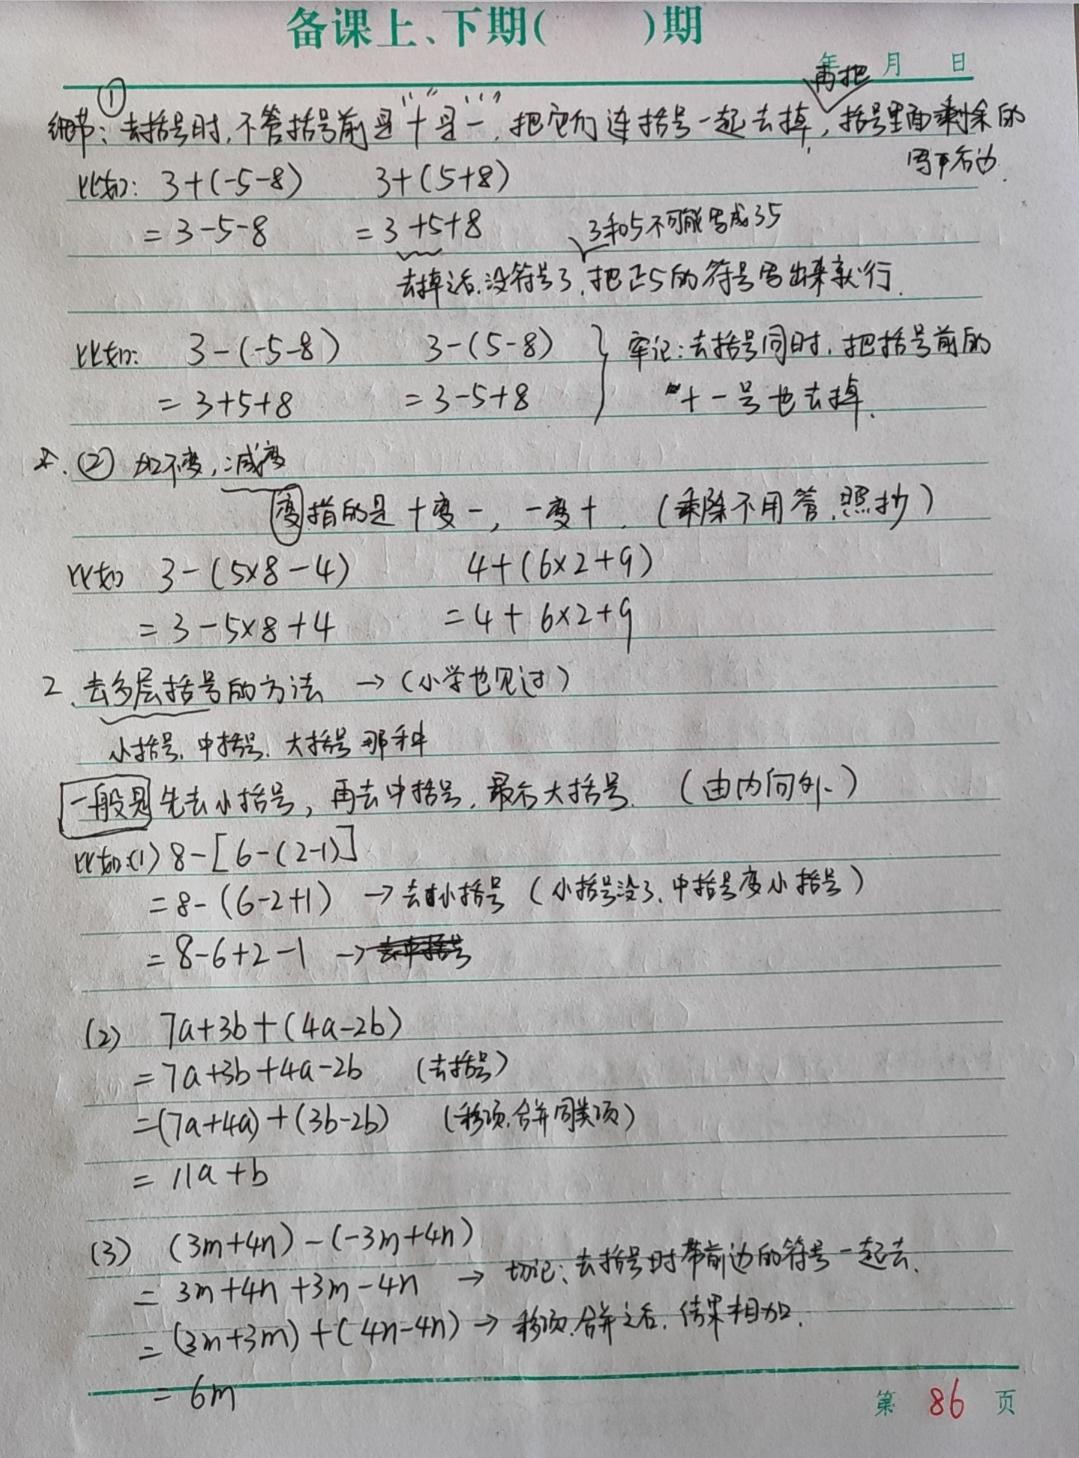 备课上、下期(　　)期
年 月 日
再把
细节：① 去括号时,不管括号前是"+"是"-",把它们连括号一起去掉,括号里面剩余的
写下右边.
比如: 3+(-5-8)　3+(5+8)
=3-5-8　=3+5+8　3和5不可能写成35
去掉之后,没符号了,把正5的符号写出来就行.
比如: 3-(-5-8)　3-(5-8) } 牢记:去括号同时,把括号前的
=3+5+8　=3-5+8　"+ - 号也去掉.
☆.② 加不变,减变
变指的是+变-, -变+. (乘除不用管,照抄)
比如 3-(5×8-4)　4+(6×2+9)
=3-5×8+4　=4+6×2+9
2、去多层括号的方法 →(小学也见过)
小括号、中括号、大括号那种
一般是先去小括号,再去中括号,最后大括号. (由内向外、)
比如:(1) 8-[6-(2-1)]
=8-(6-2+1) →去小括号 (小括号没了,中括号变小括号)
=8-6+2-1 →去中括号
(2) 7a+3b+(4a-2b)
=7a+3b+4a-2b (去括号)
=(7a+4a)+(3b-2b) (移项,合并同类项)
=11a+b
(3) (3m+4n)-(-3m+4n)
=3m+4n+3m-4n → 切记:去括号时带前边的符号一起去.
=(3m+3m)+(4n-4n)→ 移项,合并之后,结果相加.
=6m
第 86 页